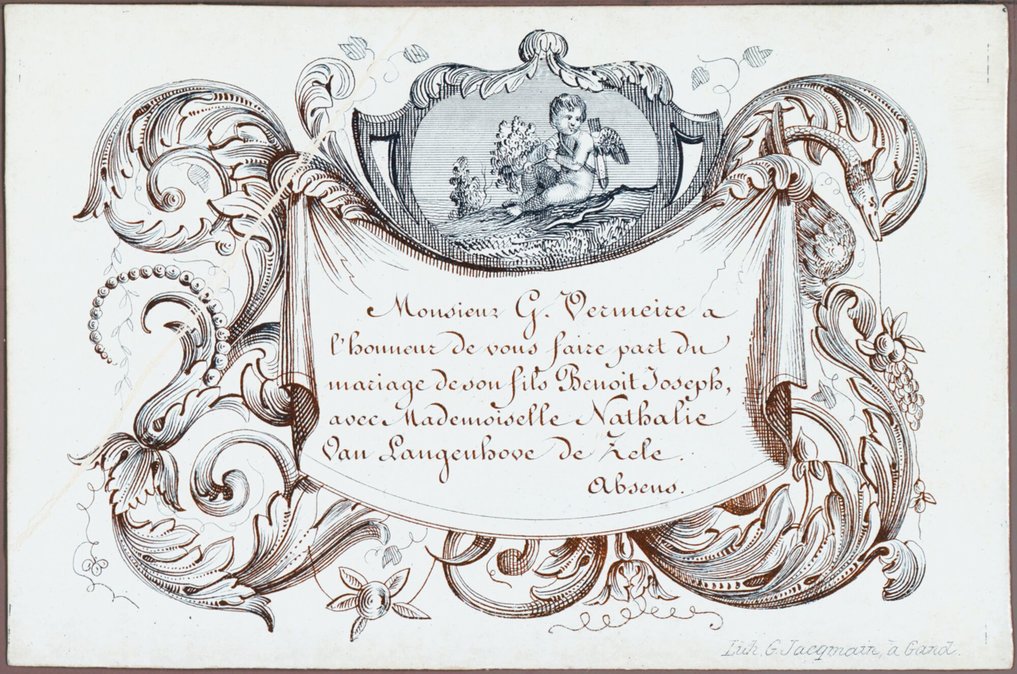 Monsieur G. Vermeire a
l'honneur de vous faire part du
mariage de son fils Benoit Joseph,
avec Mademoiselle Nathalie
Van Langenhove de Zele.
Absens.
Lith. G. Jacqmain, à Gand.